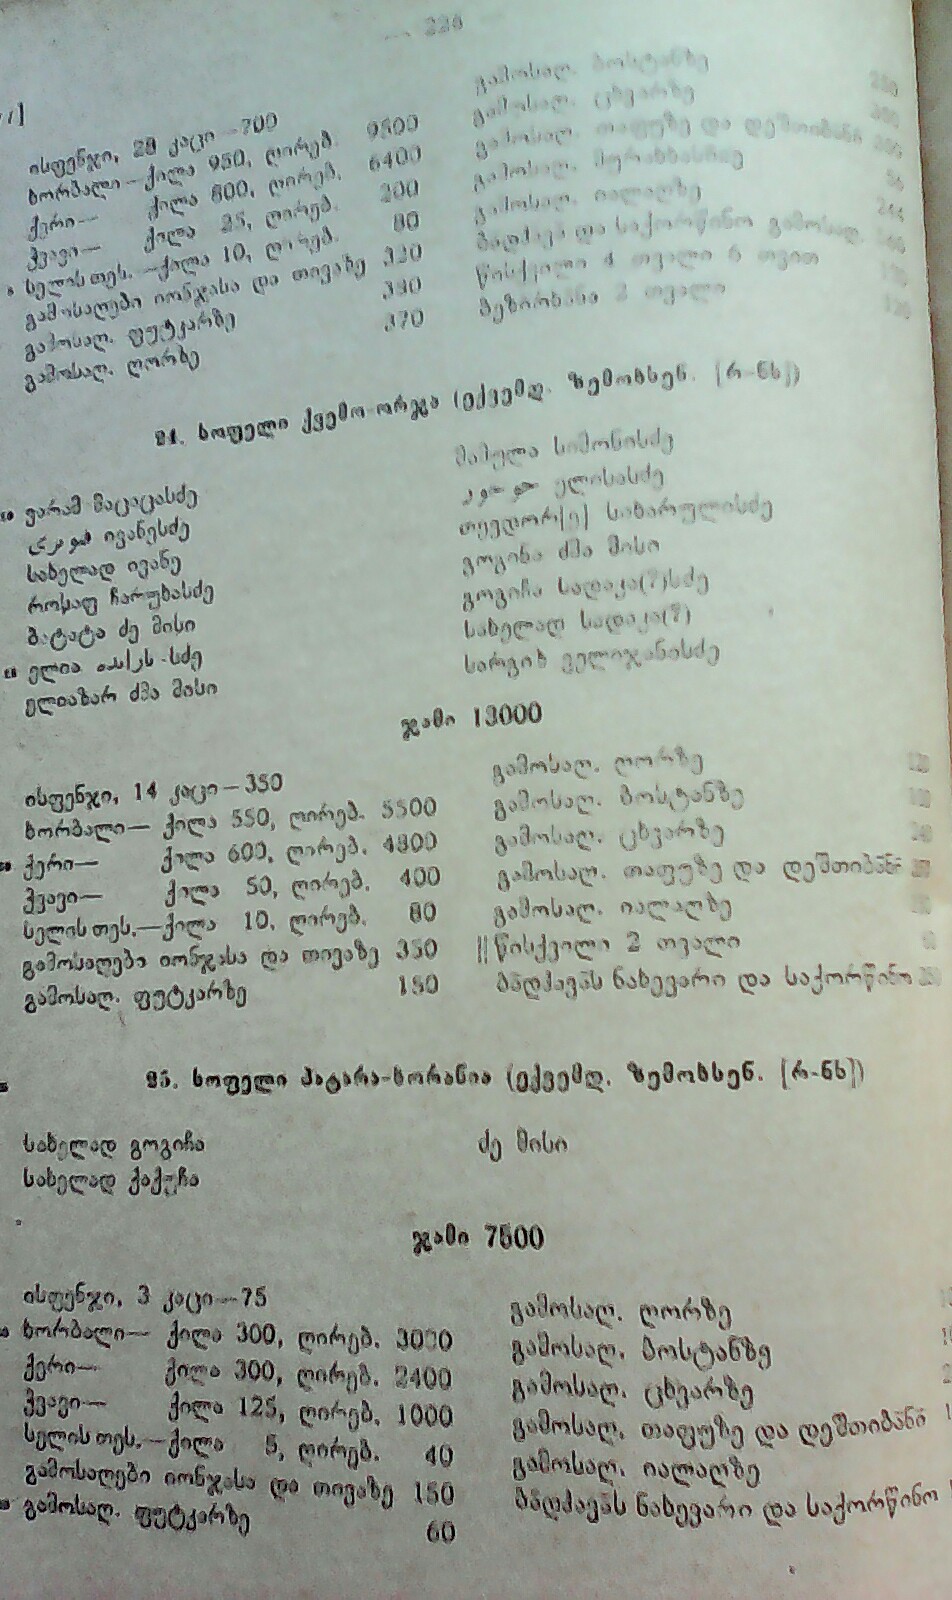 228
ისფენჯი, 28 კაცი—700
ხორბალი—ქილა 950, ღირებ. 9500
ქერი— ქილა 800, ღირებ. 6400
ჭვავი— ქილა 25, ღირებ. 200
სელის თეს.—ქილა 10, ღირებ. 80
გამოსაღები იონჯასა და თივაზე
გამოსაღ. ფუტკარზე
გამოსაღ. ღორზე 370
გამოსაღ. ბოსტანზე
გამოსაღ. ცხვარზე
გამოსაღ. თაფუზე და დეშთიბანი
გამოსაღ.
გამოსაღ. იალაღზე
ბადჰავა და საქორწინო გამოსაღ.
წისქვილი 4 თვალი 6 თვით
ბეზირხანა 2 თვალი
24. სოფელი ქვემო-ორჯა (ექვემდ. ზემოხსენ. [რ-ნს])
ვარამ მაცაცასძე
ივანესძე
სახელად ივანე
როსაფ ჩარუხასძე
ბატატა ძე მისი
ელია سدلساد-სძე
ელიაზარ ძმა მისი
მამულა სიმონისძე
ელისასძე
თევდორ[ე] სახარულისძე
გოგინა ძმა მისი
გოგიჩა სადაკა(?)სძე
სახელად სადაკა(?)
სარგის ველიჯანისძე
ჯამი 13000
ისფენჯი, 14 კაცი—350
ხორბალი— ქილა 550, ღირებ. 5500
ქერი— ქილა 600, ღირებ. 4800
ჭვავი— ქილა 50, ღირებ. 400
სელის თეს.—ქილა 10, ღირებ. 80
გამოსაღები იონჯასა და თივაზე 350
გამოსაღ. ფუტკარზე 150
გამოსაღ. ღორზე
გამოსაღ. ბოსტანზე
გამოსაღ. ცხვარზე
გამოსაღ. თაფუზე და დეშთიბანი
გამოსაღ. იალაღზე
|| წისქვილი 2 თვალი
ბადჰავას ნახევარი და საქორწინო
25. სოფელი პატარა-ხორანია (ექვემდ. ზემოხსენ. [რ-ნს])
სახელად გოგიჩა
სახელად ქაქუჩა
ძე მისი
ჯამი 7500
ისფენჯი, 3 კაცი—75
ხორბალი— ქილა 300, ღირებ. 3000
ქერი— ქილა 300, ღირებ. 2400
ჭვავი— ქილა 125, ღირებ. 1000
სელის თეს.—ქილა 5, ღირებ. 40
გამოსაღები იონჯასა და თივაზე 150
გამოსაღ. ფუტკარზე 60
გამოსაღ. ღორზე
გამოსაღ. ბოსტანზე
გამოსაღ. ცხვარზე
გამოსაღ. თაფუზე და დეშთიბანი
გამოსაღ. იალაღზე
ბადჰავას ნახევარი და საქორწინო